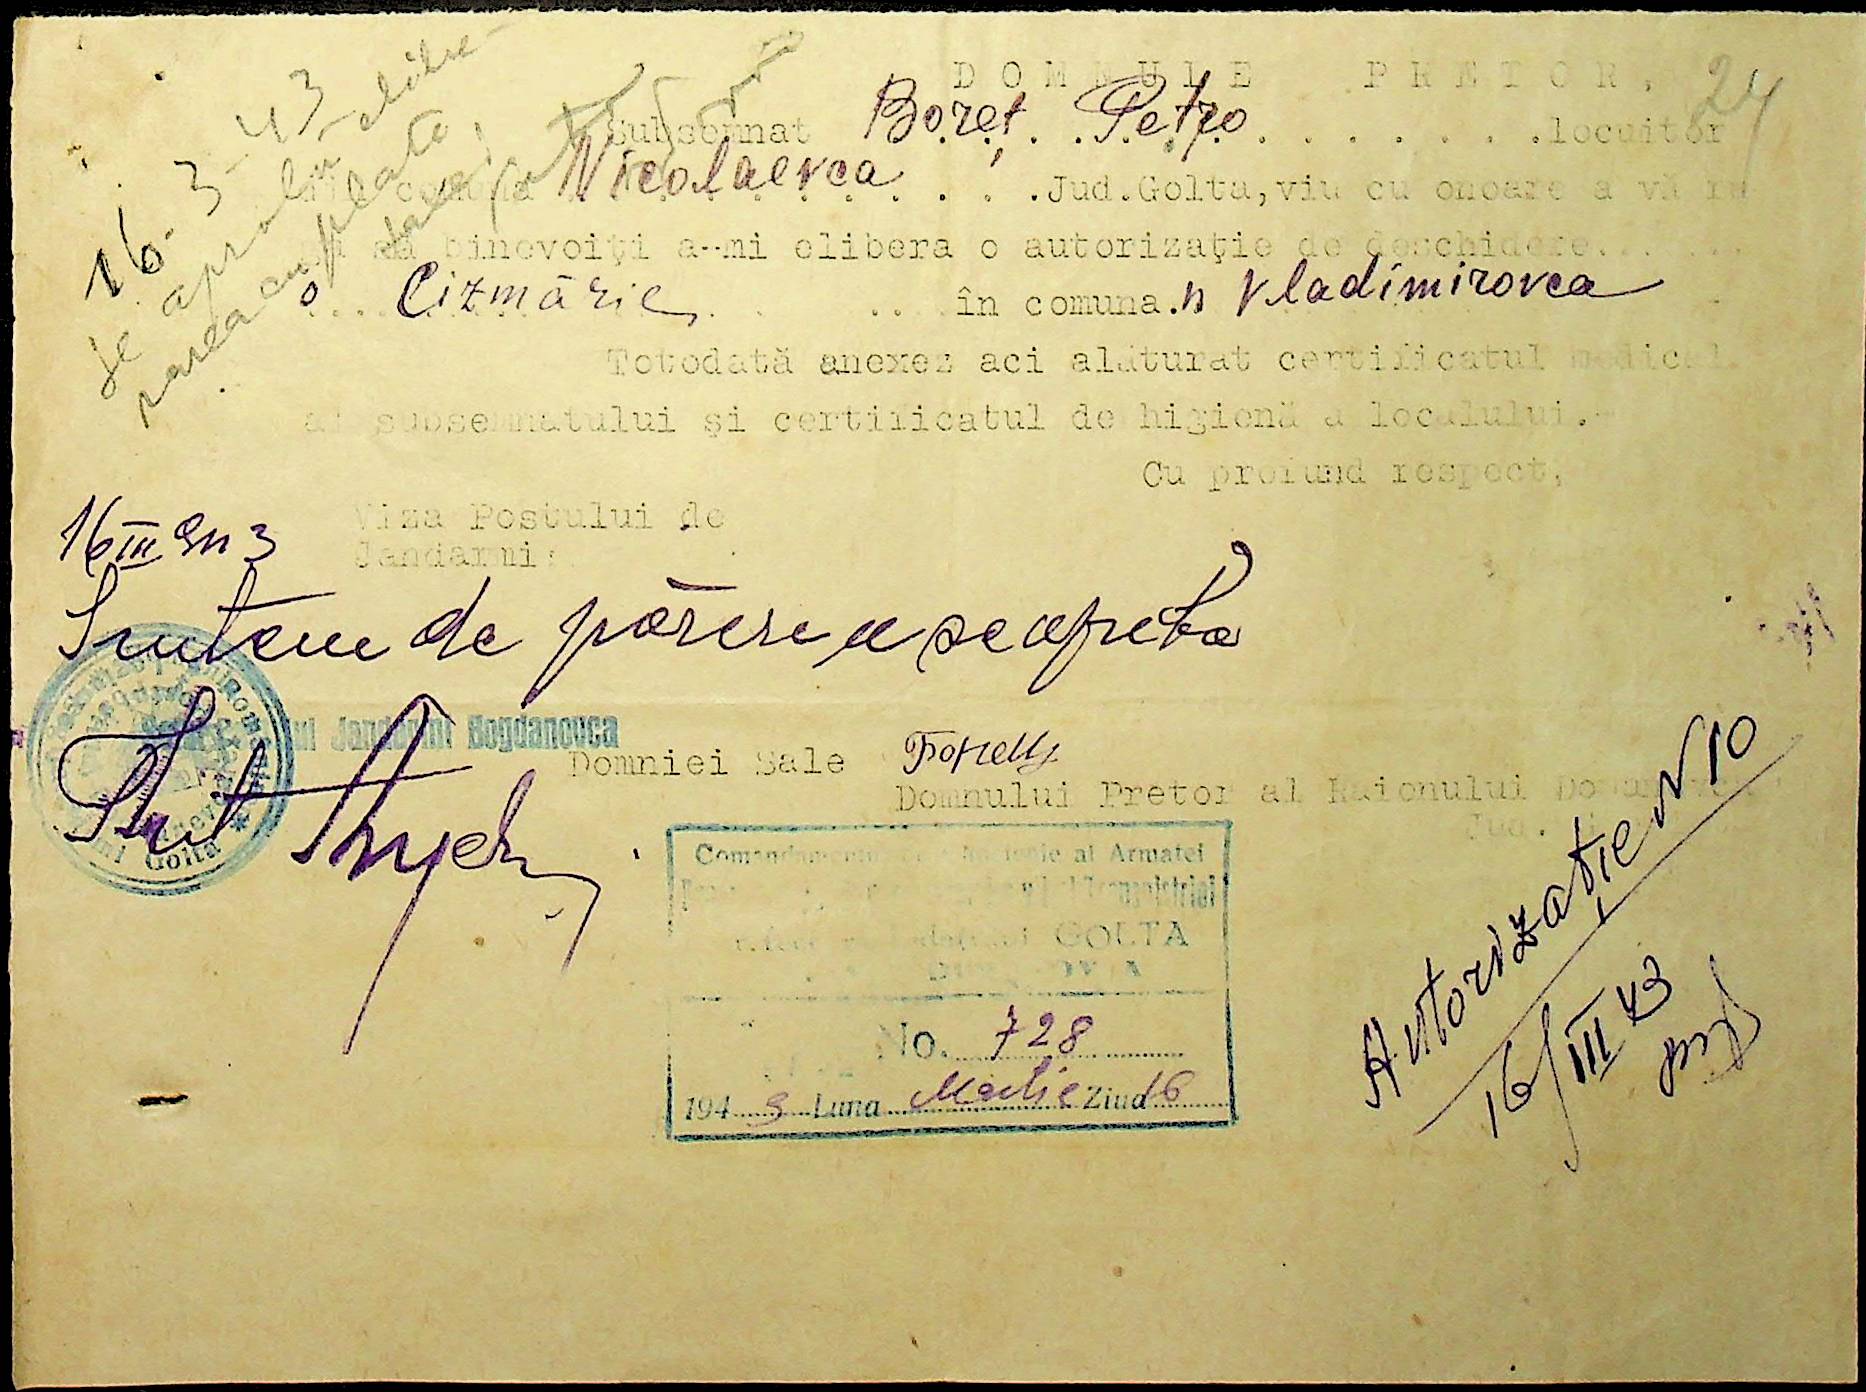 24
DOMNULE PRETOR,
Subsemnat Boreț Petro locuitor
din comuna Nicolaevca . . . . Jud.Golta, viu cu onoare a vă ru
ga să binevoiți a-mi elibera o autorizație de deschidere......
o Cizmărie în comuna. n Vladimirovca
Totodată anexez aci alăturat certificatul medical
al subsemnatului și certificatul de higienă a localului.-
Cu profund respect,
16.3-43
se aprobă
plata
16 III 943
Viza Postului de
Jandarmi:
Suntem de părere a se aproba
Jandarmi Bogdanovca
Golta
Domniei Sale
Domnului Pretor al Raionului
Jud.
Comandamentul al Armatei
Transnistriei
GOLTA
No. 728
194 3 Luna Martie Ziua 16
Autorizație N 10
16/III 43